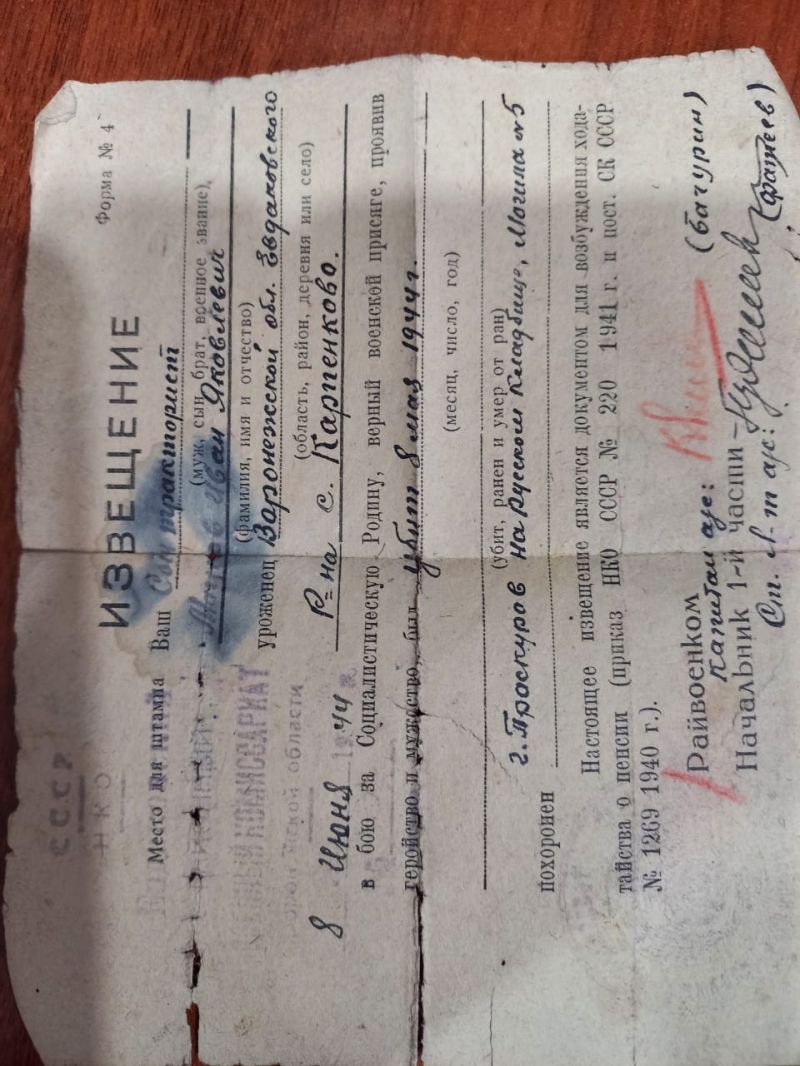 Форма № 4
СССР
НКО
ИЗВЕЩЕНИЕ
Место для штампа Ваш тракторист
(муж, сын, брат, военное звание)
Иван Яковлевич
(фамилия, имя и отчество)
КОМИССАРИАТ
уроженец Воронежской обл. Евдаковского
области
(область, район, деревня или село)
8 Июня 44 Р=на с. Карпенково.
в бою за Социалистическую Родину, верный военской присяге, проявив
геройство и мужество, был убит 8 мая 1944 г.
(месяц, число, год)
(убит, ранен и умер от ран)
похоронен г. Проскуров на Русском Кладбище, Могила №5
Настоящее извещение является документом для возбуждения хода-
тайства о пенсии (приказ НКО СССР № 220 1941 г. и пост. СК СССР
№ 1269 1940 г.).
Райвоенком
капитан а/с: (Бачурин)
Начальник 1-й части
Ст. л-т а/с: (Фатеев)